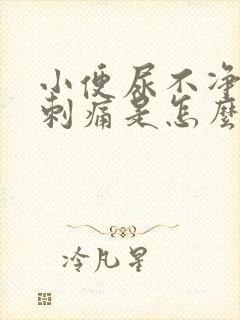 小便尿不净
刺痛是怎麼
冷凡星